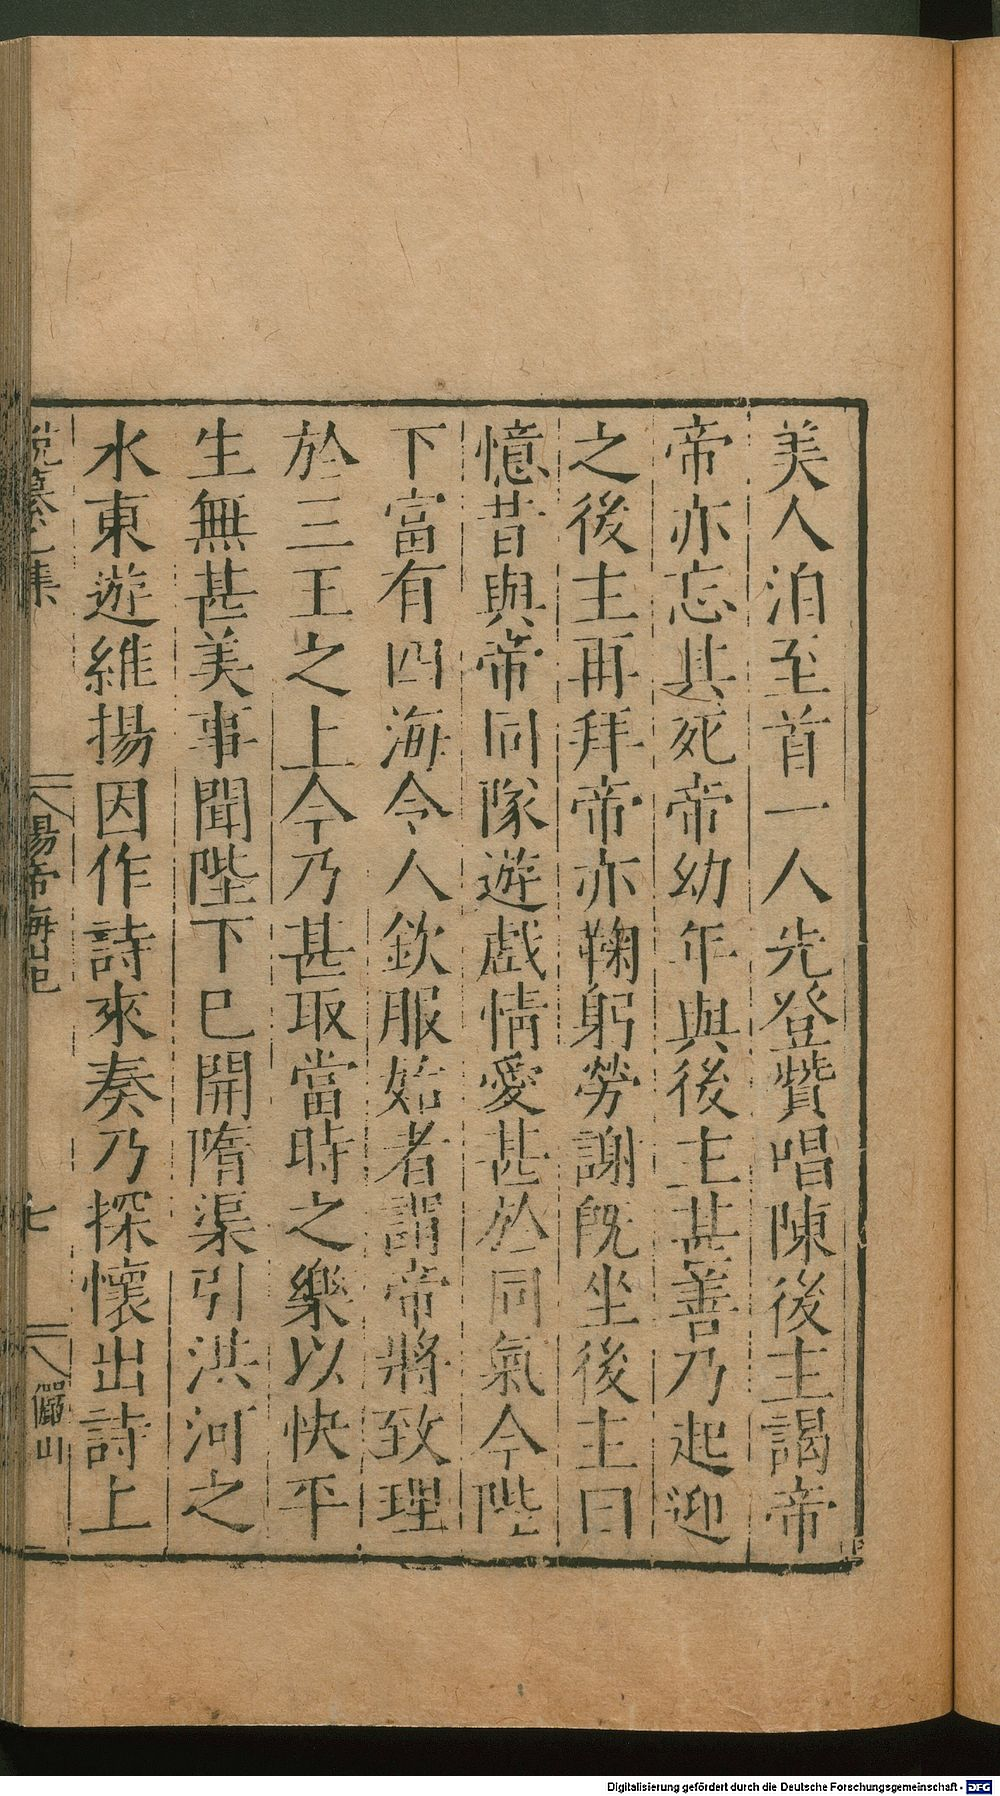 美人洎至首一人先登贊唱陳後主謁帝
帝亦忘其死帝幼年與後主甚善乃起迎
之後主再拜帝亦鞠躬勞謝旣坐後主曰
憶昔與帝同隊遊戲情愛甚於同氣今陛
下富有四海令人欽服始者謂帝將致理
於三王之上今乃甚取當時之樂以快平
生無甚美事聞陛下巳開隋渠引洪河之
水東遊維揚因作詩來奏乃探懷出詩上
說纂乙集
煬帝海山記
七
儼山
Digitalisierung gefördert durch die Deutsche Forschungsgemeinschaft - DFG